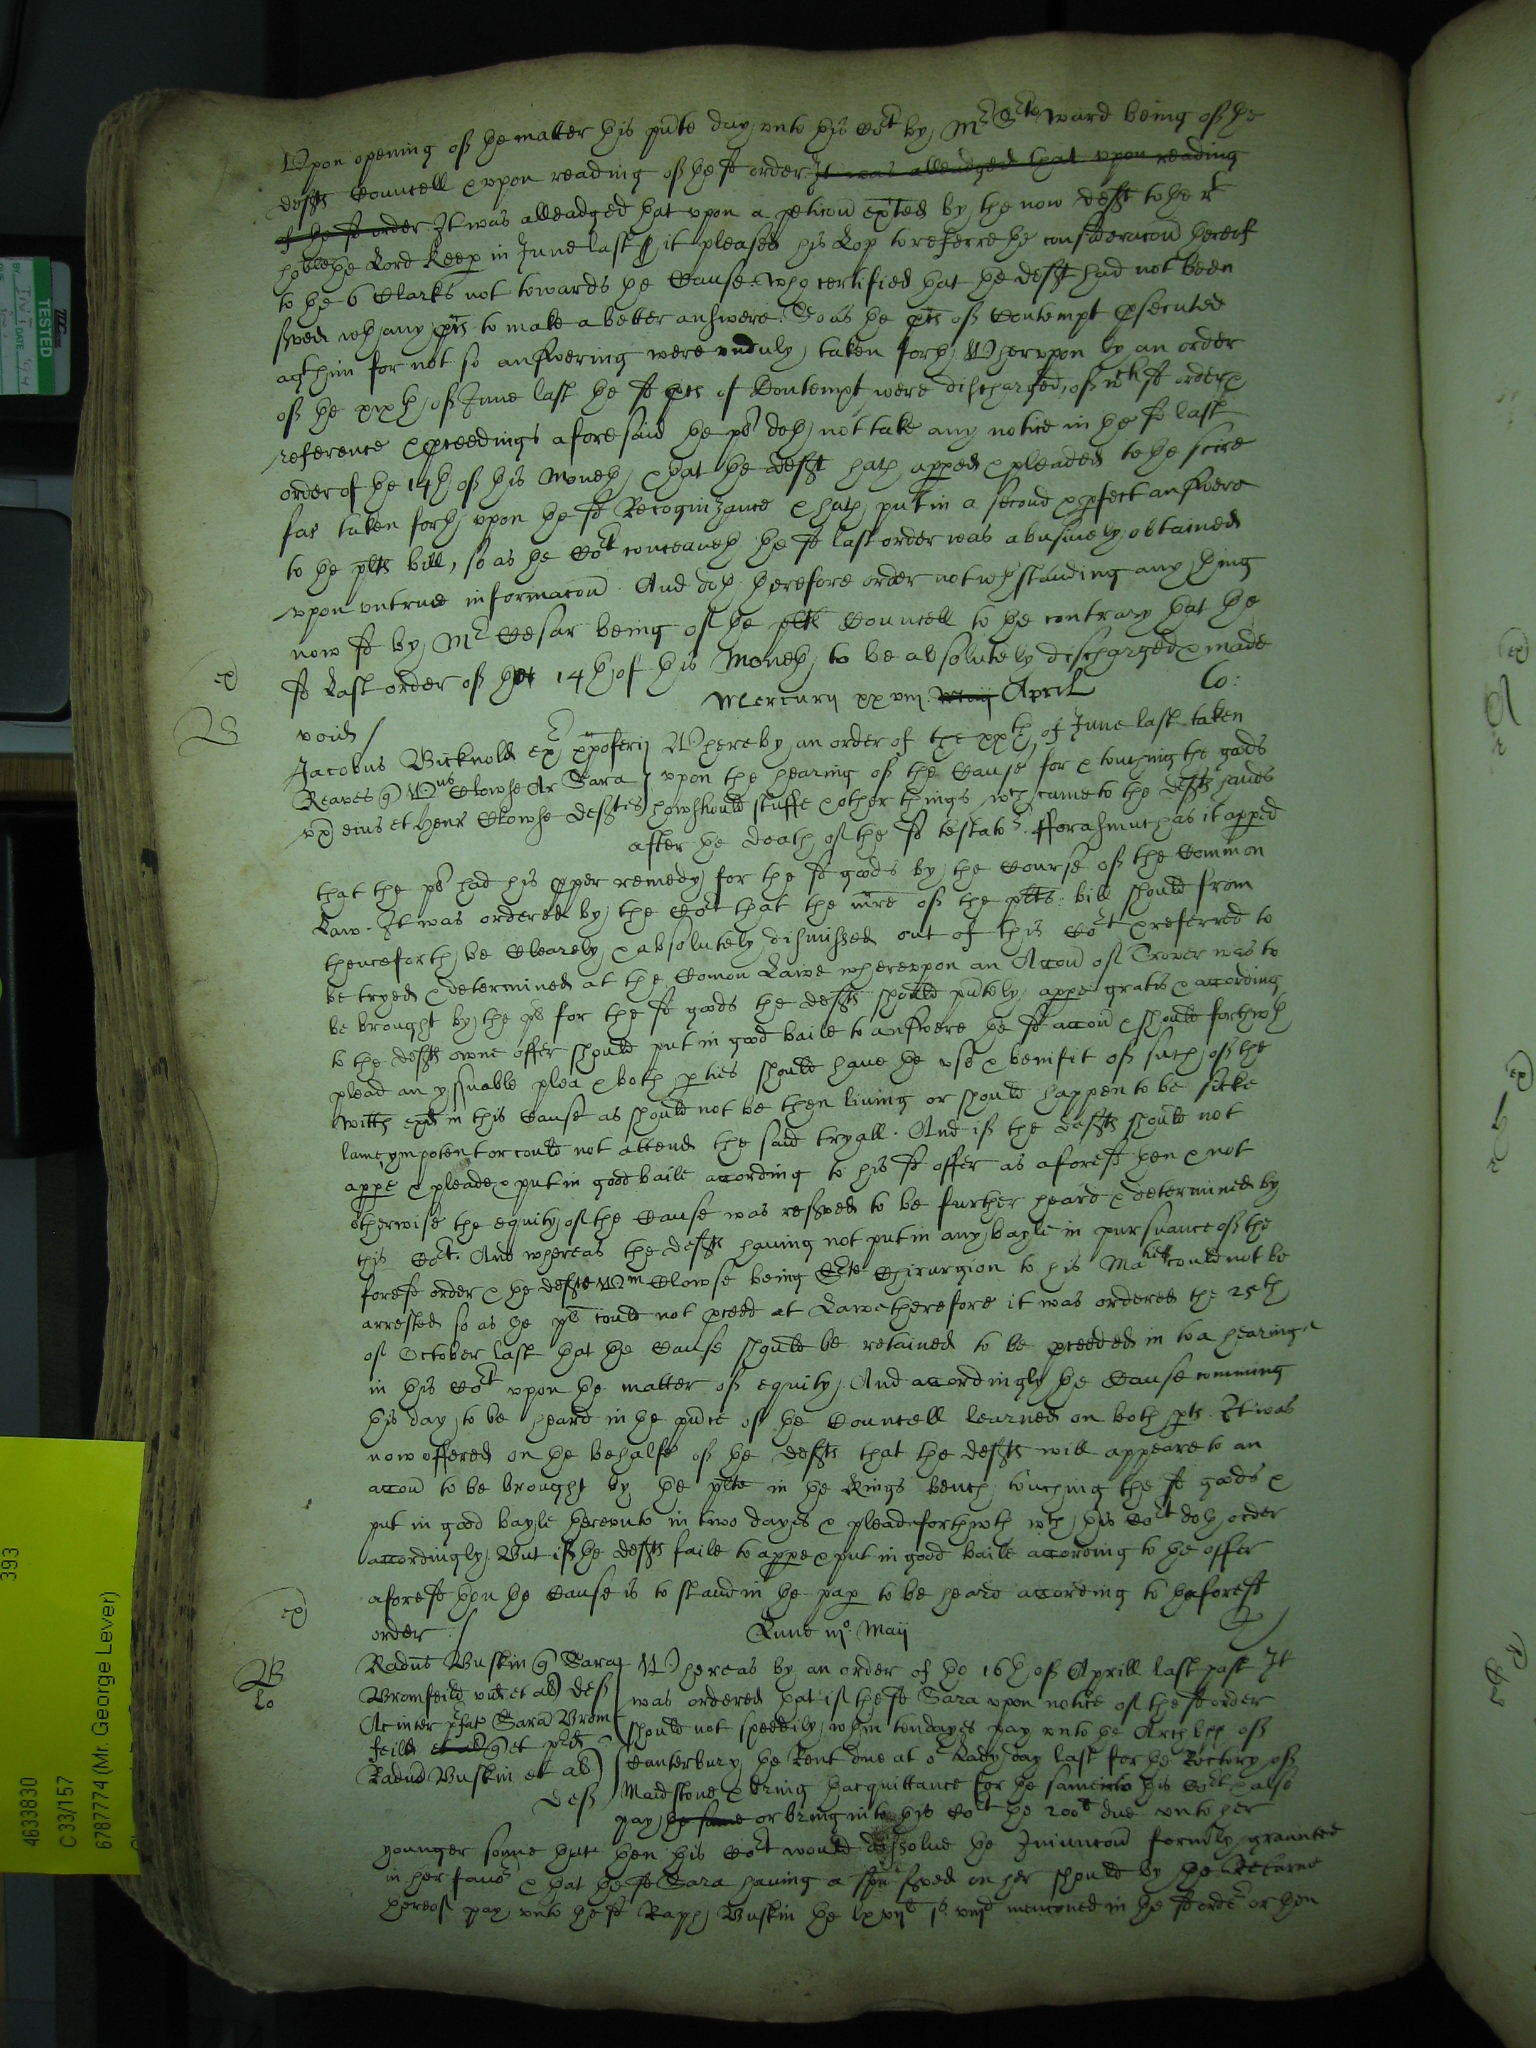 Vpon opening of the matter this pnte day vnto this Cort by Mr Steward being of the
defts Councell & vpon reading of the sd order It was alleadged that vpon reading
of the sd order It was alleadged that vpon a peticon exted by the now deft to the rt
hoble the Lord Keep in June last it pleased his Lop to referre the consideracon thereof
to the 6 Clarks not towards the Cause who certified that the deft had not been
served wth any pces to make a better answere. So as the pces of Contempt psecuted
agt him for not so answering were vnduly taken forth, Wherevpon by an order
of the xixth of June last the sd pces of Contempt were discharged, of wch sd order &
reference & pceedings aforesaid the pt doth not take any notice in the sd last
order of the 14th of this Moneth, & that the deft hath apped & pleaded to the scire
fac taken forth vpon the sd Recognizance & hath put in a second & pfect answere
to the plts bill, so as the Cort conceaveth the sd last order was abusively obtained
vpon vntrue informacon. And doth therefore order notwthstanding any thing
now sd by Mr Cesar being of the plts Councell to the contrary that the
sd last order of the 14th of this Moneth, to be absolutely discharged & made
void /
Mercurij xxviij Maij April Co:
Jacobus Bicknold exr xpoferi Whereby an order of the xxth of June last taken
Reaves qr Wms Clowse Ar Sara vpon the hearing of the Cause for & touching the goods
vx eius et Henr Clowse defts howshould stuffe & other things wch came to the defts hands
after the death of the sd testator. fforasmuch as it apped
that the pt had his pper remedy for the sd goods by the Course of the Common
Law. It was ordered by the Cort that the mre of the plts bill should from
thenceforth be Clearely & absolutely dismissed out of this Cort & referred to
be tryed & determined at the Comon Lawe wherevpon an Accon of Trover was to
be brought by the pt for the sd goods the defts should pntely appe gratis & according
to the defts owne offer should put in good baile to answere the sd accon & should forthwth
plead an yssuable plea & both pties should have the vse & benifit of such of the
witts exd in this Cause as should not be then living or should happen to be sicke
lame ympotent or could not attend the said tryall. And if the defts should not
appe & pleade & put in good baile according to his sd offer as aforesd then & not
otherwise the equity of the Cause was resved to be further heard & determined by
this Cort. And whereas the defts having not put in any bayle in pursuance of the
foresd order & the deft Wm Clowse being Chirurgion to his Matie could not be
arrested so as the pt could not pceed at Lawe therefore it was ordered the 25th
of October last that the Cause should be retained to be pceeded in to a hearing
in this Cort vpon the matter of equity. And accordingly the Cause comming
this day to be heard in the pnce of the Councell learned on both pts. It was
now offered on the behalfe of the defts that the defts will appeare to an
accon to be brought by the plte in the Kings bench touching the sd goods &
put in good bayle therevnto in two dayes & plead forthwth wch this Cort doth order
accordingly. But if the defts faile to appe & put in good baile according to the offer
aforesd then the Cause is to stand in the pap to be heard according to the foresd
order /
Lune iijo Maij
Radus Buskin qr Sara Whereas by an order of the 16th of Aprill last past It
Bromfeild vid et al def was ordered that if the sd Sara vpon notice of the sd order
Ac inter pfat Sara Brom should not speedily wthin tenn dayes pay vnto the Archbpp of
feild et al qr et pd Canterbury the Rent due at or Lady day last for the Rectory of
Radu Buskin et al def Maidstone & bring thacquittance for the same into this Cort & also
pay the same or bring into this Cort the 200l due vnto her
younger sonne that then this Cort would dissolve the Iniuncon formly graunted
in her favor & that the sd Sara having a spa served on her should by the Returne
thereof pay vnto the sd Raph Buskin the menconed in the sd order or then
TESTED
DATE
393
4633830
C 33/157
6787774 (Mr. George Lever)